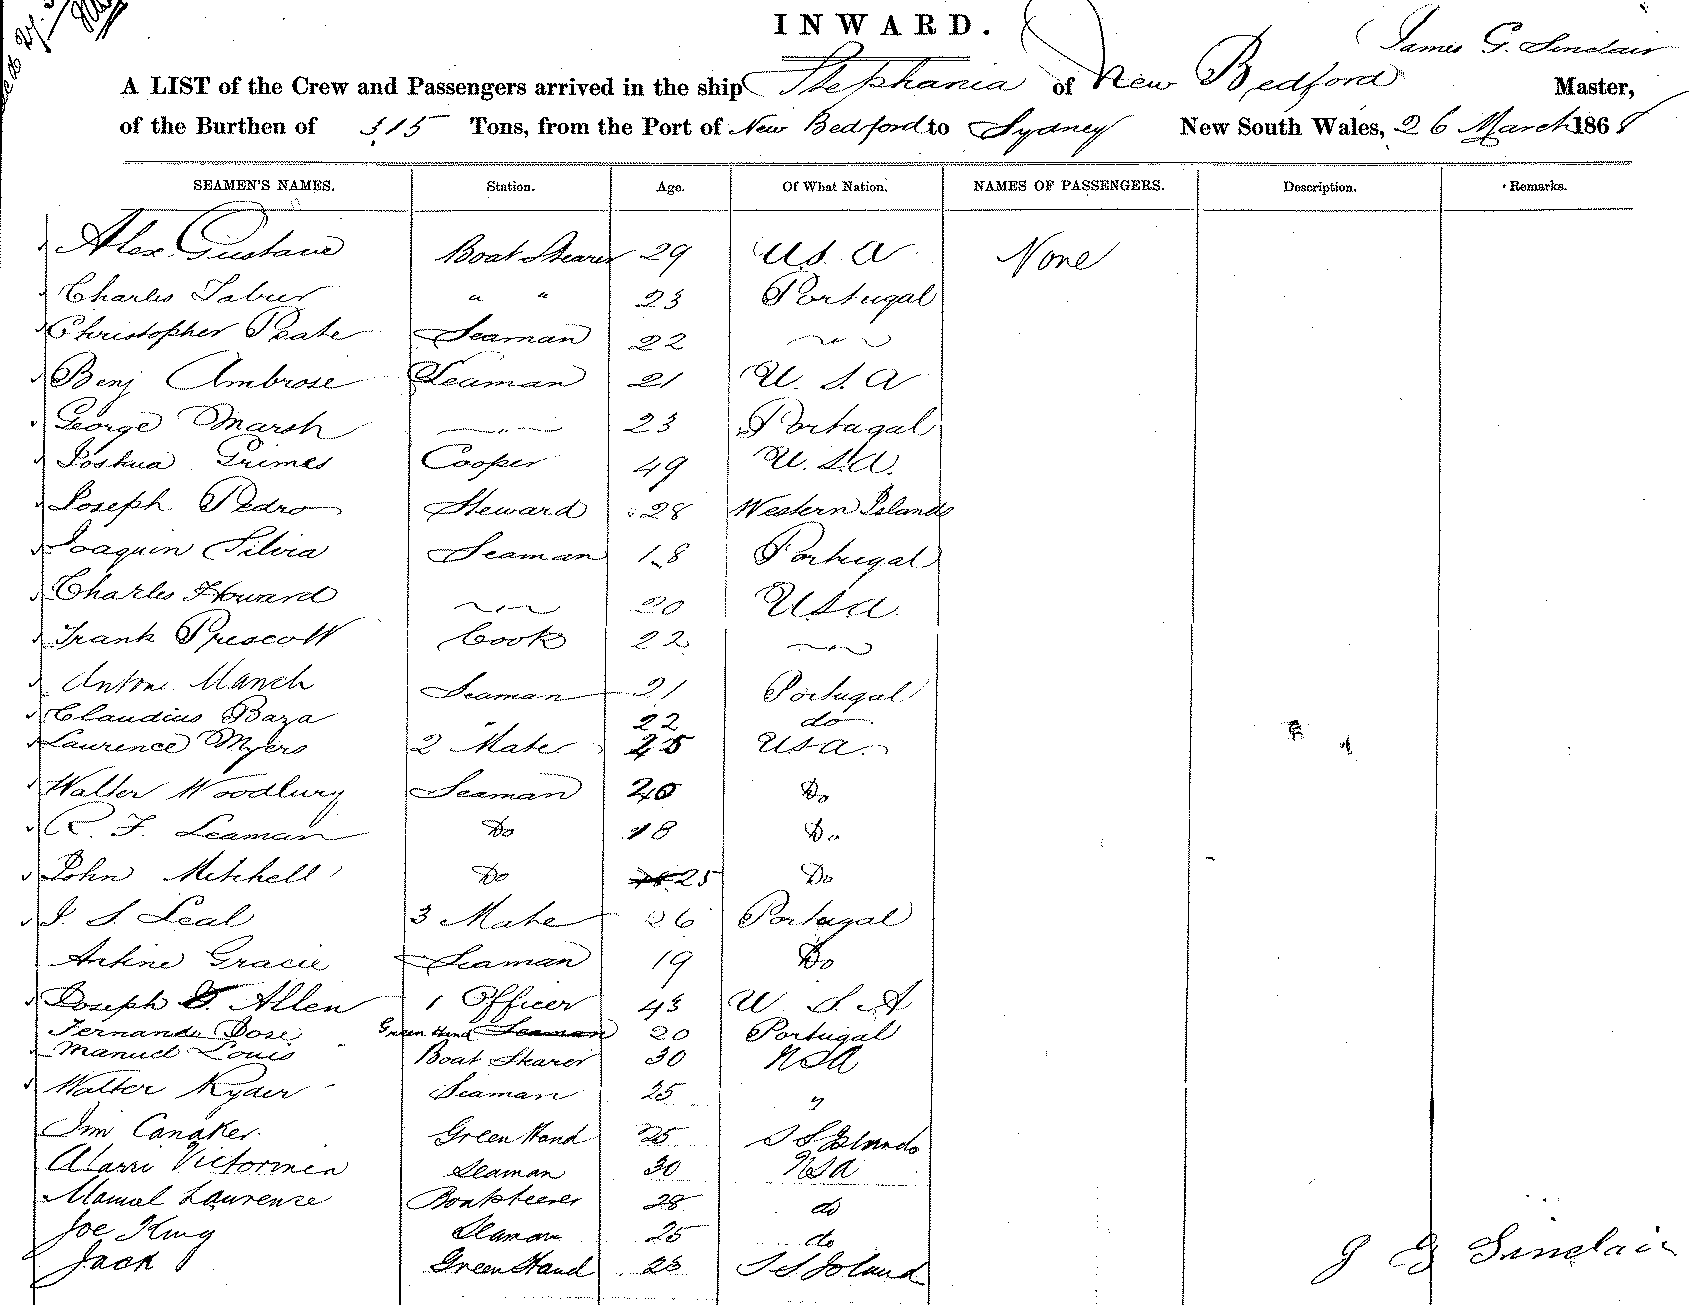 INWARD.
James G. Sinclair
A LIST of the Crew and Passengers arrived in the ship Stephania of New Bedford Master,
of the Burthen of 315 Tons, from the Port of New Bedford to Sydney New South Wales, 26 March 1868
SEAMEN'S NAMES. Station. Age. Of What Nation. NAMES OF PASSENGERS. Description. Remarks.
Alex. Gustave Boat Stearer 29 U.S.A None
Charles " " 23 Portugal
Christopher Peate Seaman 22 — " —
Benj Ambrose Seaman 21 U. S. A
George Marsh — " — 23 Portugal
Joshua Grimes Cooper 49 U. S. A.
Joseph Pedro Steward 28 Western Islands
Joaquin Silvia Seaman 18 Portugal
Charles Howard — " — 20 USA
Frank Prescott Cook 22 — " —
Antone Manch Seaman 21 Portugal
Claudius Baza " 22 do
Laurence Myers 2 Mate 25 USA.
Walter Woodbury Seaman 20 Do
R. F. Leaman Do 18 Do
John Mitchell Do 25 Do
J. S. Leal 3 Mate 26 Portugal
Antine Gracie Seaman 19 Do
Joseph Allen 1 Officer 43 U S. A
Fernande Jose Green Hand Seaman 20 Portugal
Manuel Louis Boat Stearer 30 USA
Walter Ryder Seaman 25 "
Jim Canaker Green Hand 25 S S Islands
Victorinia Seaman 30 USA
Manuel Laurense Boatsteerer 28 do
Joe King Seaman 25 do
Jack Green Hand 23 S S Island
J G Sinclair